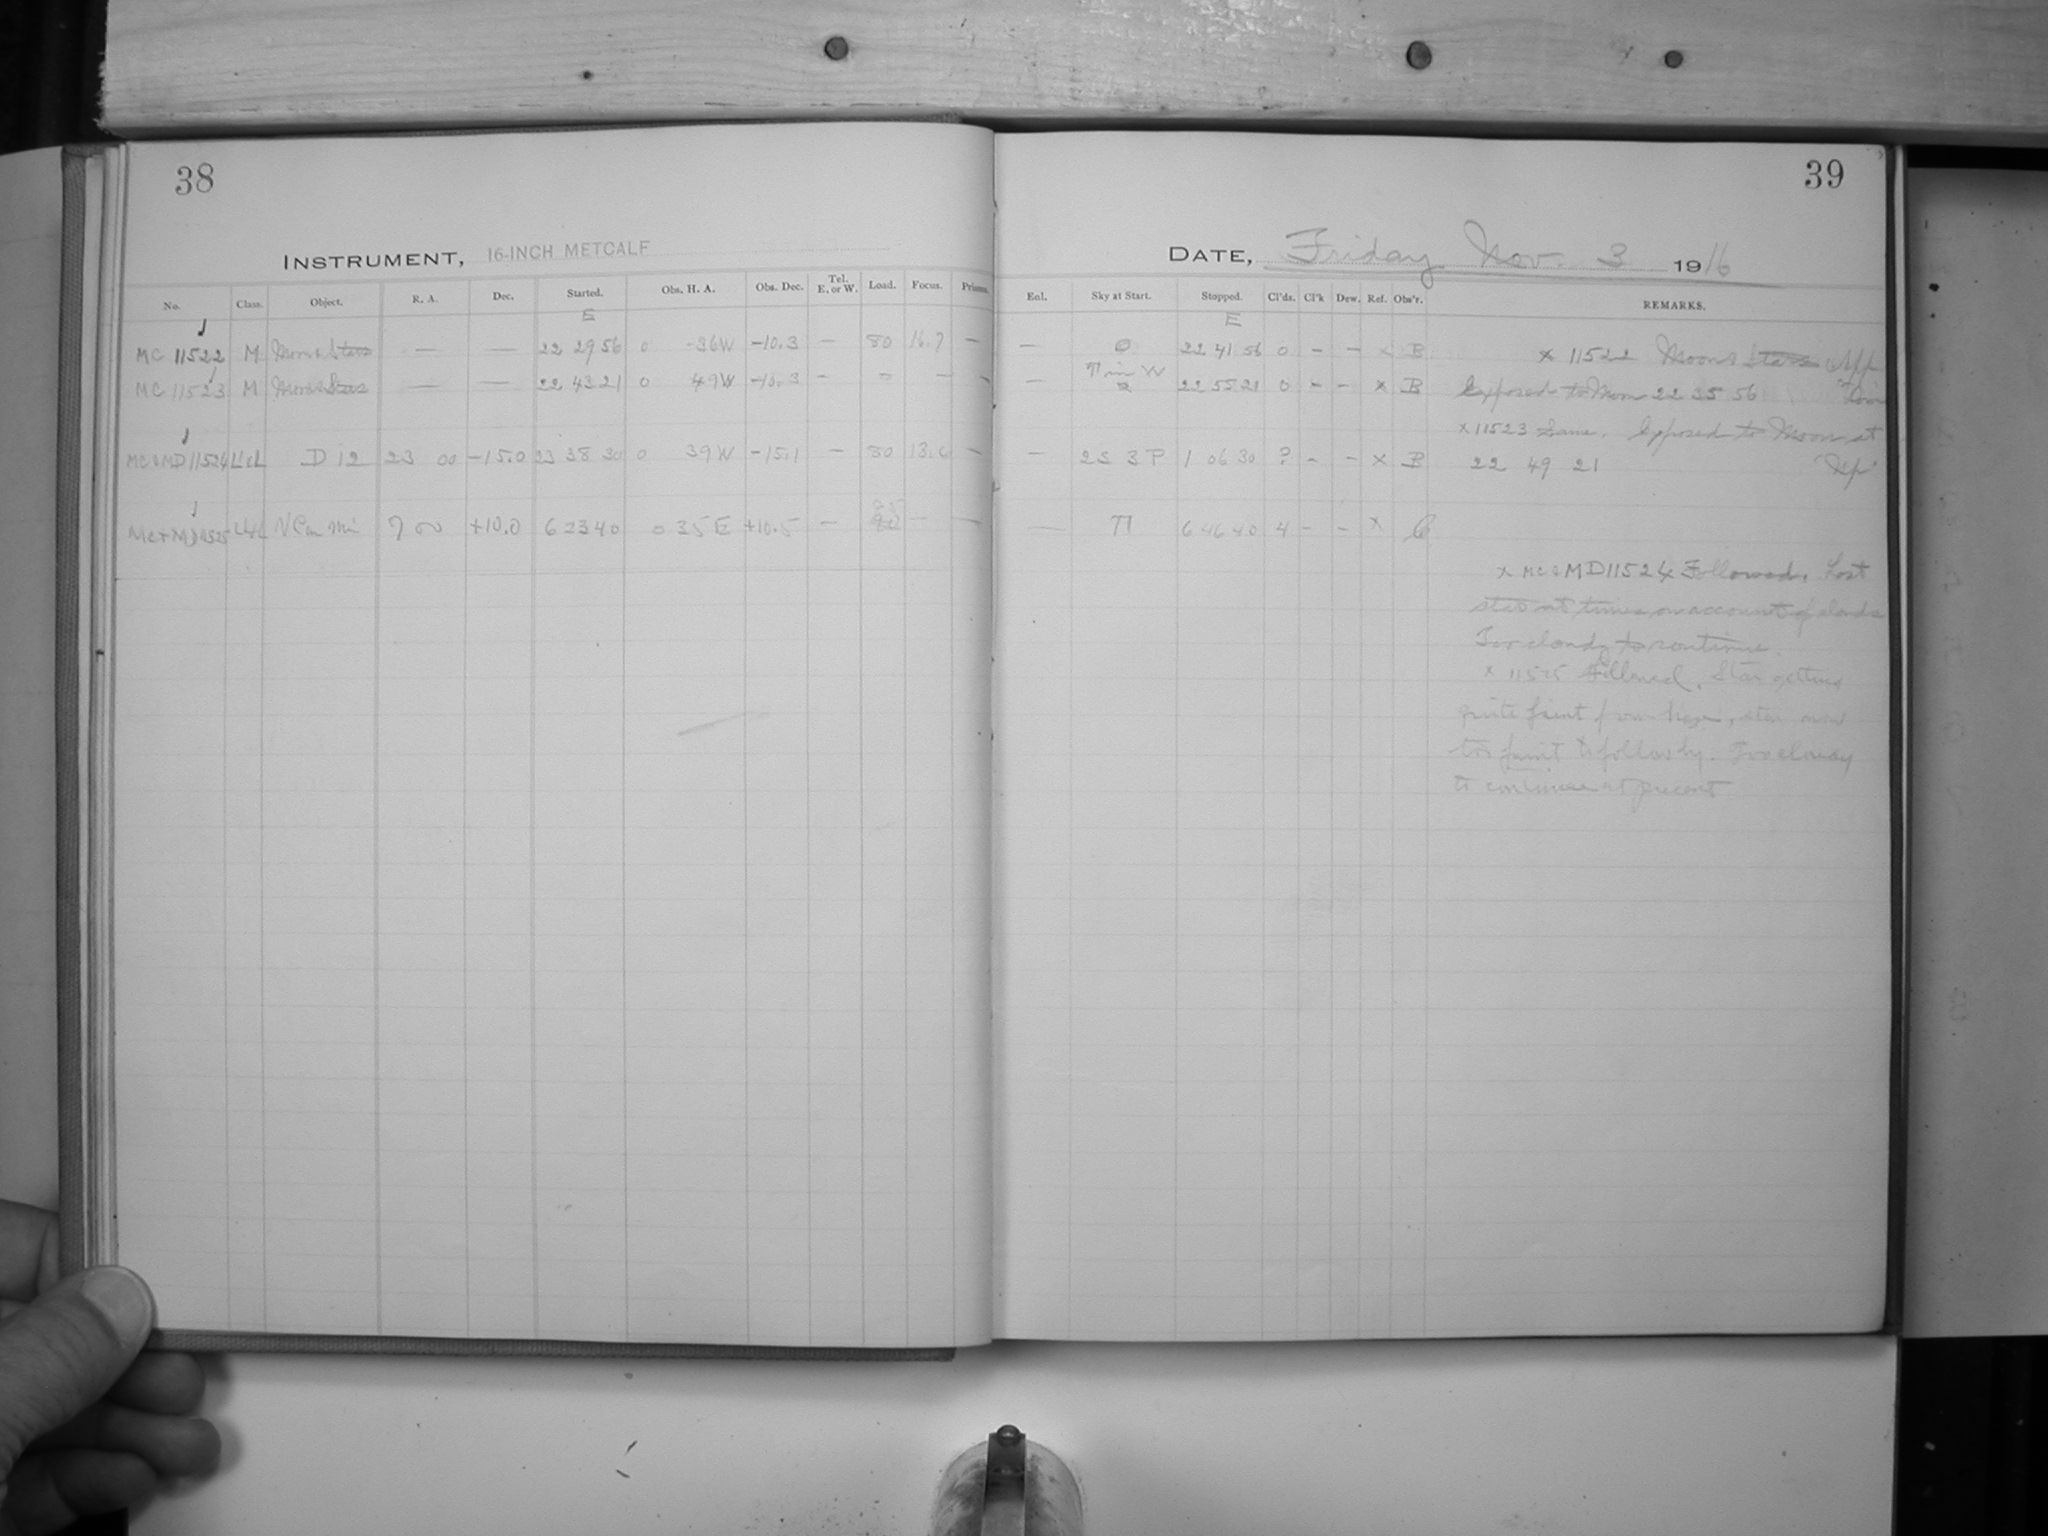 38
INSTRUMENT, 16-INCH METCALF
No. Class. Object. R. A. Dec. Started. Obs. H. A. Obs. Dec. Tel. E. or W. Load. Focus. Prisms.
E
MC 11522 M Moon & Stars — — 22 29 56 0 -36W -10.3 — 80 16.7 —
MC 11523 M Moon & Stars — — 22 43 21 0 49W -10.3 – — –
MC & MD 11524 D 12 23 00 -15.0 23 38 30 0 39W -15.1 — 80 13.6 –
MC + MD 11525 N Can Mi 7 00 +10.0 6 23 40 0 35 E +10.5 – — —
39
DATE, Friday Nov. 3 1916
Enl. Sky at Start. Stopped. Cl'ds. Cl'k Dew. Ref. Obs'r. REMARKS.
E
— 0 22 41 56 0 – – x B x 11522 Moon & Stars
— 22 55 21 0 – – x B Exposed to Moon 22 35 56
x 11523 Same. Exposed to Moon at
— 2S 3P 1 06 30 ? – – x B 22 49 21
— 6 46 40 4 – – x
x MC & MD 11524 Followed. Lost
star at times on account of clouds
Too cloudy to continue.
x 11525 Followed. Star getting
quite faint from haze, star now
too faint to follow by. Too cloudy
to continue at present